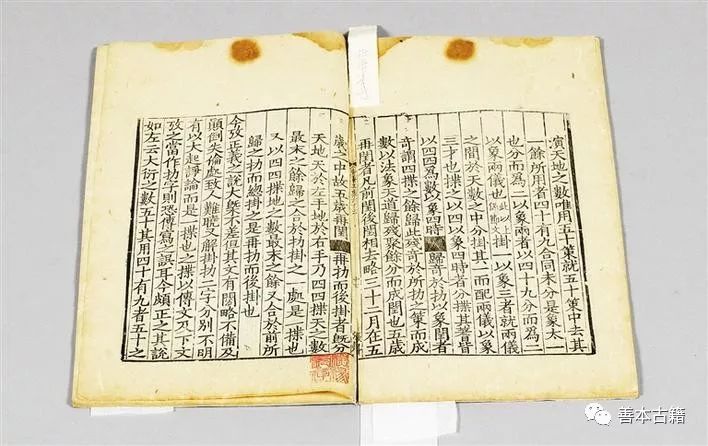 演天地之數唯用五十策就五十策中去其
一餘所用者四十有九合同未分是象太一
也分而為二以象兩者以四十九分而為二
以象兩儀也掛一以象三者就兩儀
之間於天數之中分掛其一而配兩儀以象
三才也揲之以四以象四時者分揲其蓍皆
以四四為數以象四時歸奇於扐以象閏者
奇謂四揲之餘歸此殘奇於所扐之策而成
數以法象天道歸殘聚餘分而成閏也五歲
再閏者凡前閏後閏相去略三十二月在五
歲之中故五歲再閏再扐而後掛者既分
天地天於左手地於右手乃四四揲天之數
最末之餘歸之合於扐掛之一處是一揲也
又以四四揲地之數最末之餘又合於前所
歸之扐而緫掛之是再扐而後掛也
今攷正義之說大槩不差但其文有闊略不備及
顛倒失倫處致人難曉又解掛扐二字分別不明
有以大起諍論而是一揲也之揲以傳文下文
攷之當作扐字則恐傳寫之誤耳今頗正之其說
如左云大衍之數五十其用四十有九者五十之
善本古籍